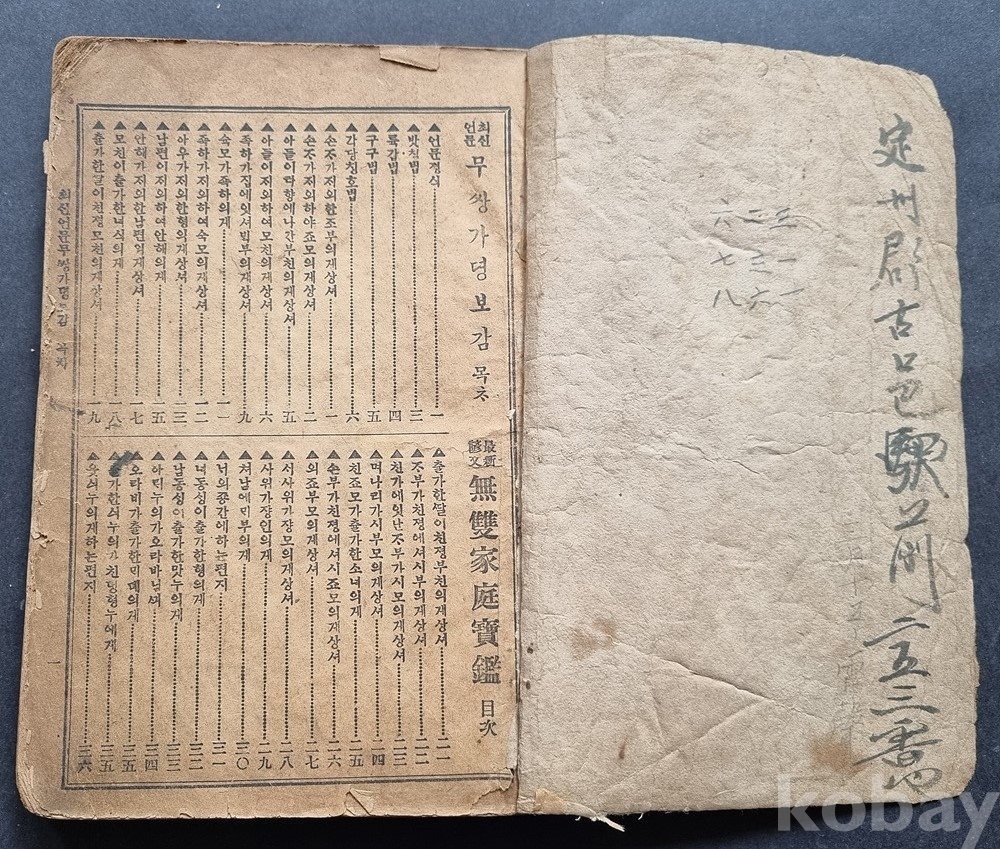 定州郡古邑驛前二五三番地
三一一
二三六
六七八
최신언문 무쌍가뎡보감 목차
▲언문경식 一
▲밧침법 三
▲륙갑법 四
▲구구법 五
▲각댱칭호법 六
▲손자가저의한조부의게상셔 一
▲손조가저의하야죠모의게상셔 二
▲아들이타향에나간부친의게상셔 五
▲아들이저의하여모친의게상셔 六
▲족하가집에잇셔빅부의게상셔 九
▲숙모가족하의게 一一
▲족하가저의하여숙모의게상셔 一二
▲아우가저의한형의게상셔 一三
▲남편이저의하여안해의게 一五
▲안해가저의한남편의게상셔 一七
▲모친이출가한녀식의게 一八
▲출가한딸이친졍모친의게상셔 一九
最新諺文 無雙家庭寶鑑 目次
▲출가한딸이친졍부친의게상셔 二一
▲자부가친졍에셔시부의게상셔 二二
▲친가에잇난자부가시모의게상셔 二三
▲며나리가시부모의게상셔 二四
▲친죠모가출가한소녀의게 二五
▲손부가친졍에셔시죠모의게상셔 二六
▲외죠부모의게상셔 二七
▲서사위가쟝모의게상셔 二八
▲사위가쟝인의게 二九
▲쳐남에믹부의게 三〇
▲너외죵간에하는편지 三一
▲녀동싱이출가한형의게 三二
▲남동싱이출가한맛누의게 三三
▲아릭누의가오라바님끠 三四
▲오라비가출가한믹뎨의게 三五
▲출가한싀누의가친뎡형누에게 三五
▲맛싀누의게하는편지 三六
최신언문무쌍가뎡보감 목차
一
kobay